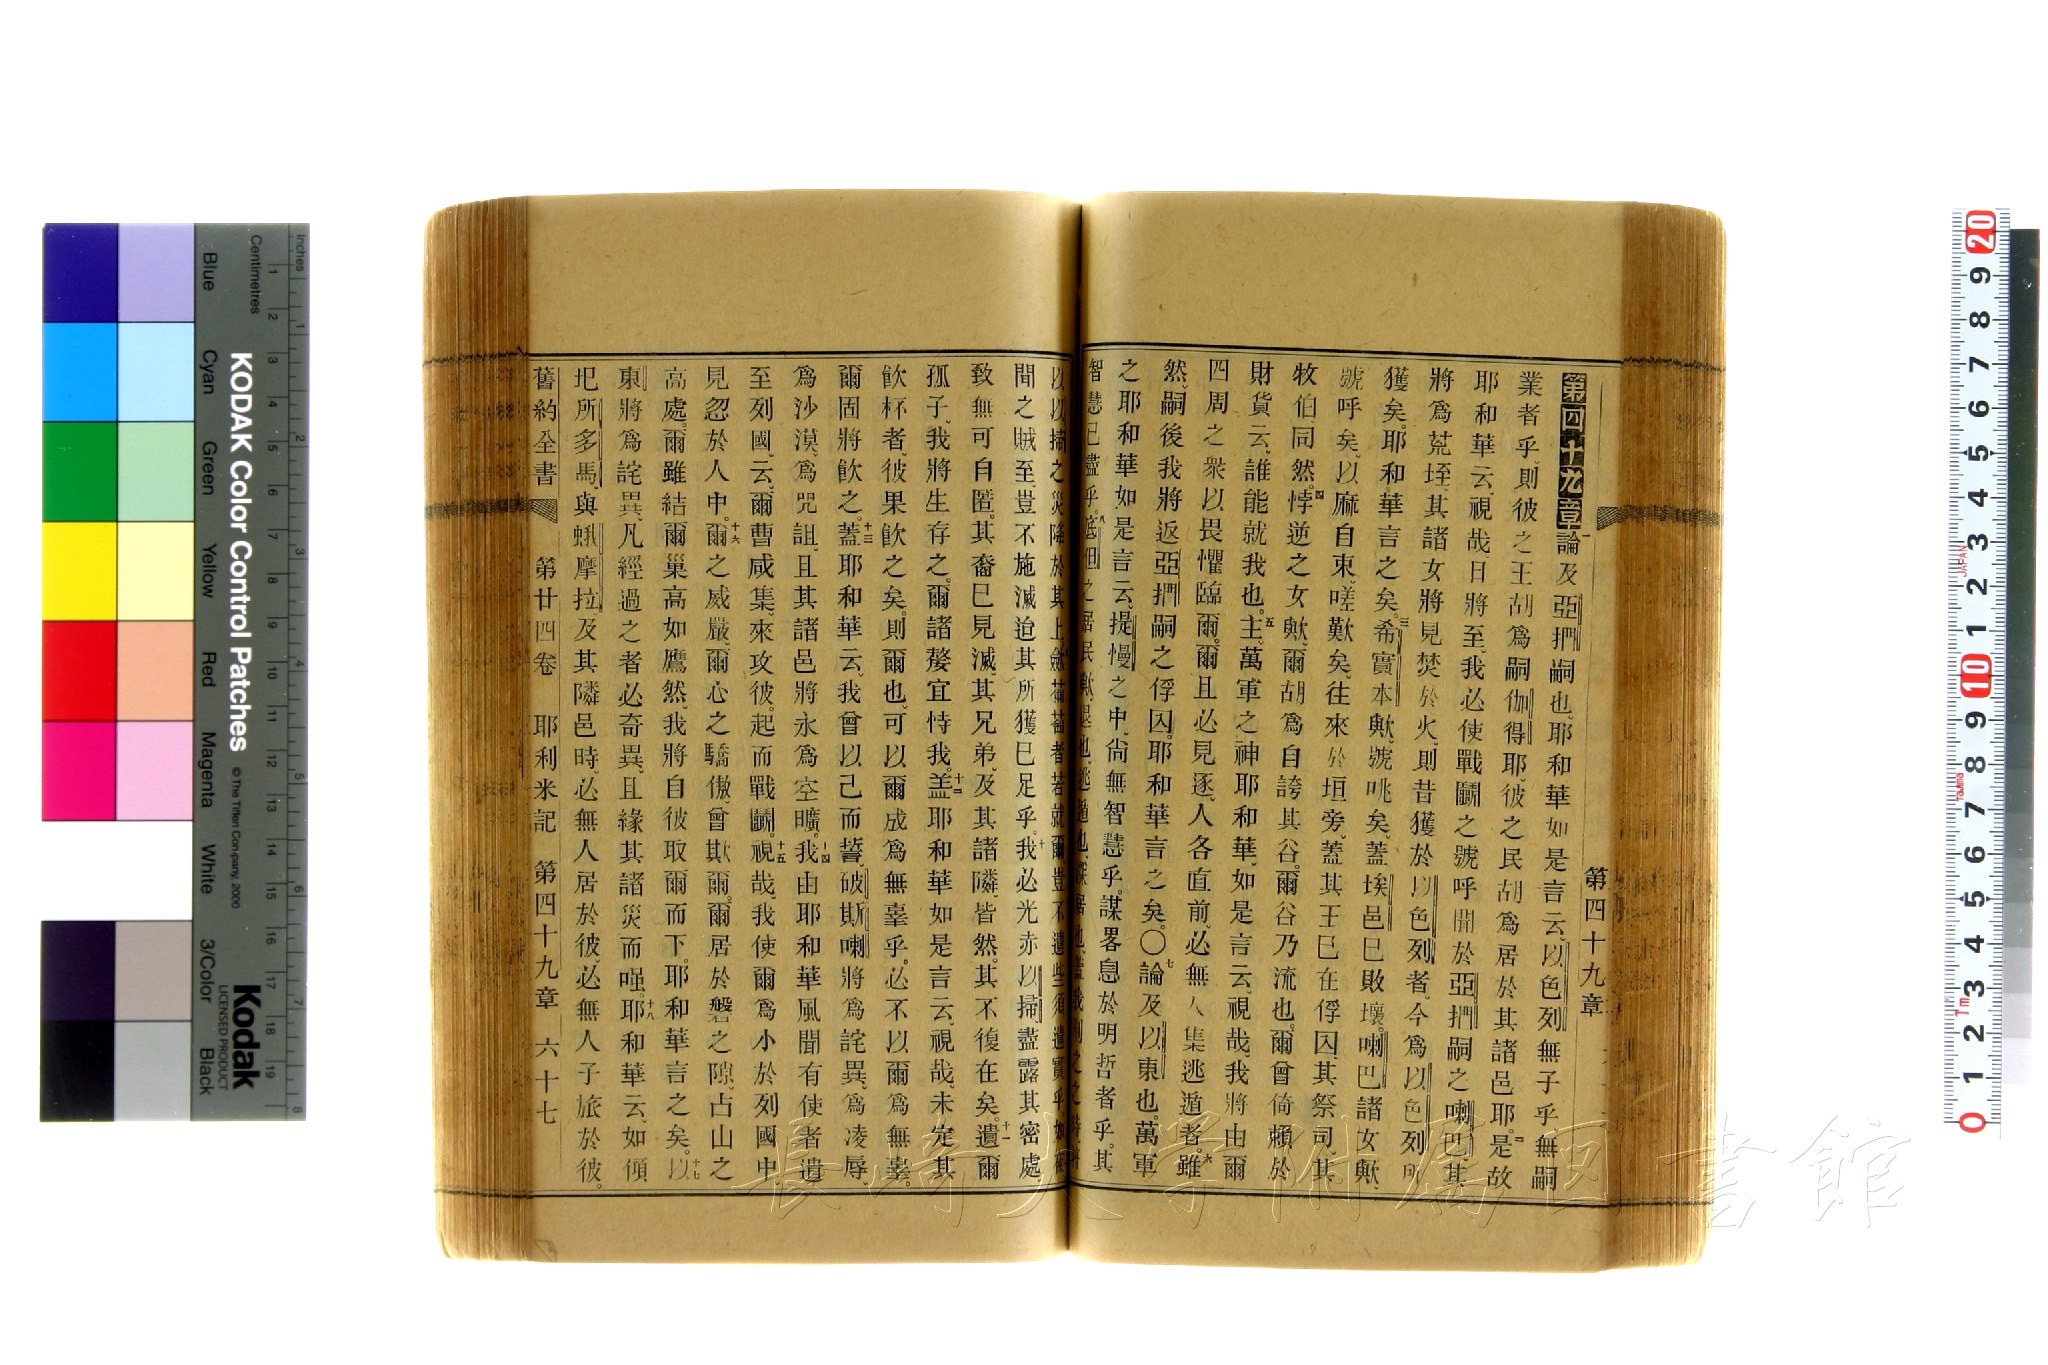 第四十九章
第四十九章一論及亞捫嗣也、耶和華如是言云、以色列無子乎、無嗣
業者乎、則彼之王胡爲嗣伽得耶、彼之民胡爲居於其諸邑耶。二是故
耶和華云、視哉、日將至、我必使戰鬬之號呼聞於亞捫嗣之喇巴、其
將爲荒垤、其諸女將見焚於火、則昔獲於以色列者、今爲以色列所
獲矣。耶和華言之矣。三希實本歟、號咷矣、蓋埃邑巳敗壞。喇巴諸女歟、
號呼矣、以麻自束、嗟歎矣、往來於垣旁、蓋其王巳在俘囚、其祭司、其
牧伯、同然。四悖逆之女歟、爾胡爲自誇其谷。爾谷乃流也。爾曾倚賴於
財貨云、誰能就我也。五主、萬軍之神耶和華、如是言云、視哉、我將由爾
四周之衆以畏懼臨爾。爾且必見逐、人各直前、必無人集逃遁者。六雖
然、嗣後我將返亞捫嗣之俘囚。耶和華言之矣。〇七論及以東也。萬軍
之耶和華如是言云、提慢之中、尙無智慧乎。謀畧息於明哲者乎。其
智慧已盡乎。八底但之居民歟、退也、逃遁也、深居也、蓋我刑之之時、
間之賊至、豈不施滅迨其所獲巳足乎。十我必光赤以掃、盡露其密處、
致無可自匿。其裔巳見滅、其兄弟、及其諸隣、皆然。其不復在矣。十一遺爾
孤子、我將生存之。爾諸嫠宜恃我。十二盖耶和華如是言云、視哉、未定其
飮杯者、彼果飮之矣。則爾也、可以爾成爲無辜乎。必不以爾爲無辜。
爾固將飮之。十三蓋耶和華云、我曾以己而誓、破斯喇將爲詫異、爲凌辱、
爲沙漠、爲咒詛、且其諸邑將永爲空曠。十四我由耶和華風聞有使者遣
至列國、云、爾曹咸集、來攻彼。起而戰鬬。十五視哉、我使爾爲小於列國中、
見忽於人中。十六爾之威嚴、爾心之驕傲、曾欺爾。爾居於磐之隙、占山之
高處。爾雖結爾巢高如鷹然、我將自彼取爾而下。耶和華言之矣。十七以
東將爲詫異、凡經過之者必奇異、且緣其諸災而嗤。十八耶和華云、如傾
圯所多馬、與蛾摩拉、及其隣邑時、必無人居於彼、必無人子旅於彼。
舊約全書 第廿四卷 耶利米記 第四十九章 六十七
長崎大学附属図書館
KODAK Color Control Patches
© The Tiffen Company, 2000
Kodak
LICENSED PRODUCT
Inches
Centimetres
Blue Cyan Green Yellow Red Magenta White 3/Color Black